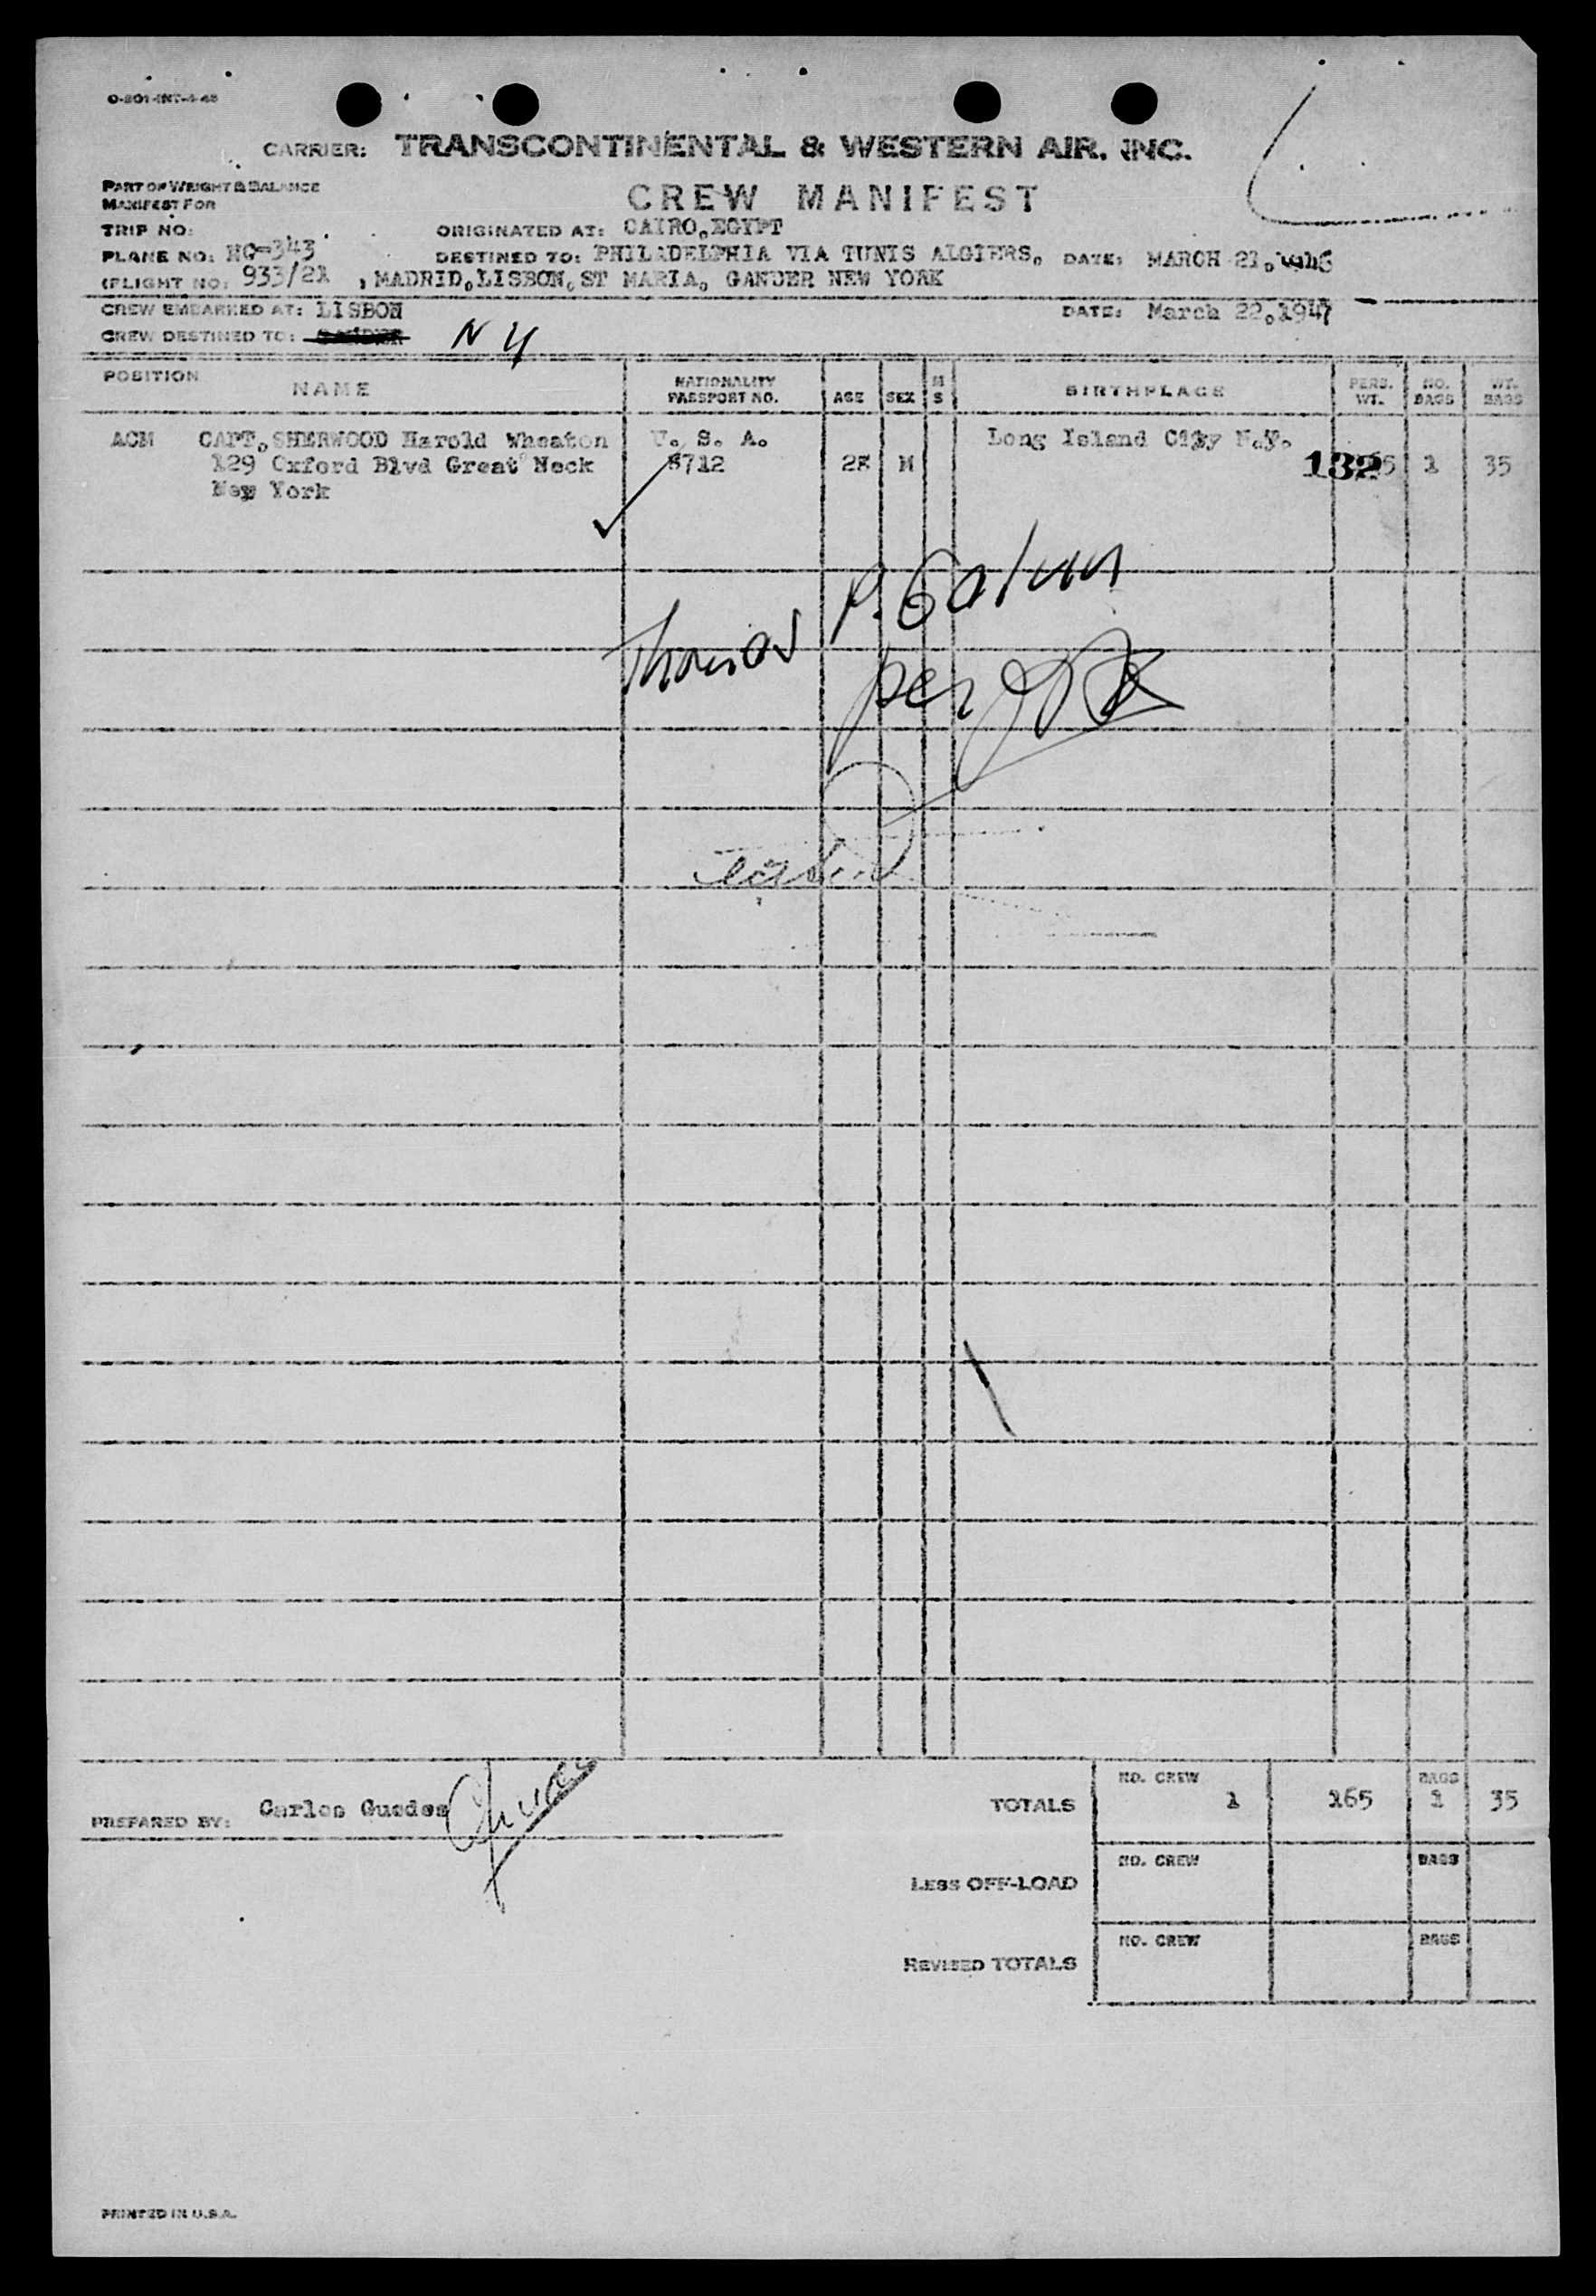 CARRIER: TRANSCONTINENTAL & WESTERN AIR, INC.
PART OF WEIGHT & BALANCE
MANIFEST FOR
CREW MANIFEST
TRIP NO:
ORIGINATED AT: CAIRO,EGYPT
PLANE NO:
DESTINED TO: PHILADELPHIA VIA TUNIS ALGIERS, DATE: MARCH 21,
(FLIGHT NO: 933/21 , MADRID,LISBON,ST MARIA, GANDER NEW YORK
CREW EMBARKED AT: LISBON DATE: March 22,1947
CREW DESTINED TO: N Y
POSITION NAME NATIONALITY PASSPORT NO. AGE SEX M S BIRTHPLACE PERS. WT. NO. BAGS WT. BAGS
ACM CAPT,SHERWOOD Harold Wheaton U. S. A. Long Island City N.Y.
129 Oxford Blvd Great Neck 8712 28 M 132 1 35
New York
Thomas P. Galvin
per
PREPARED BY: Carlos Guedes
TOTALS NO. CREW 1 165 BAGS 1 35
LESS OFF-LOAD NO. CREW BAGS
REVISED TOTALS NO. CREW BAGS
PRINTED IN U.S.A.